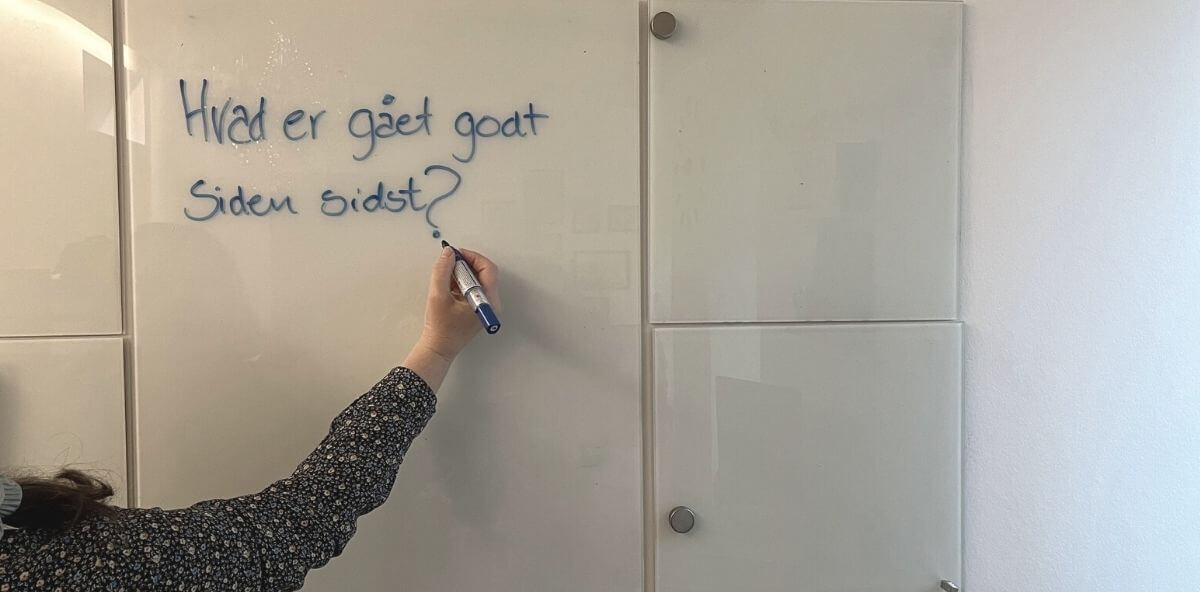 Hvad er gået godt
Siden sidst?